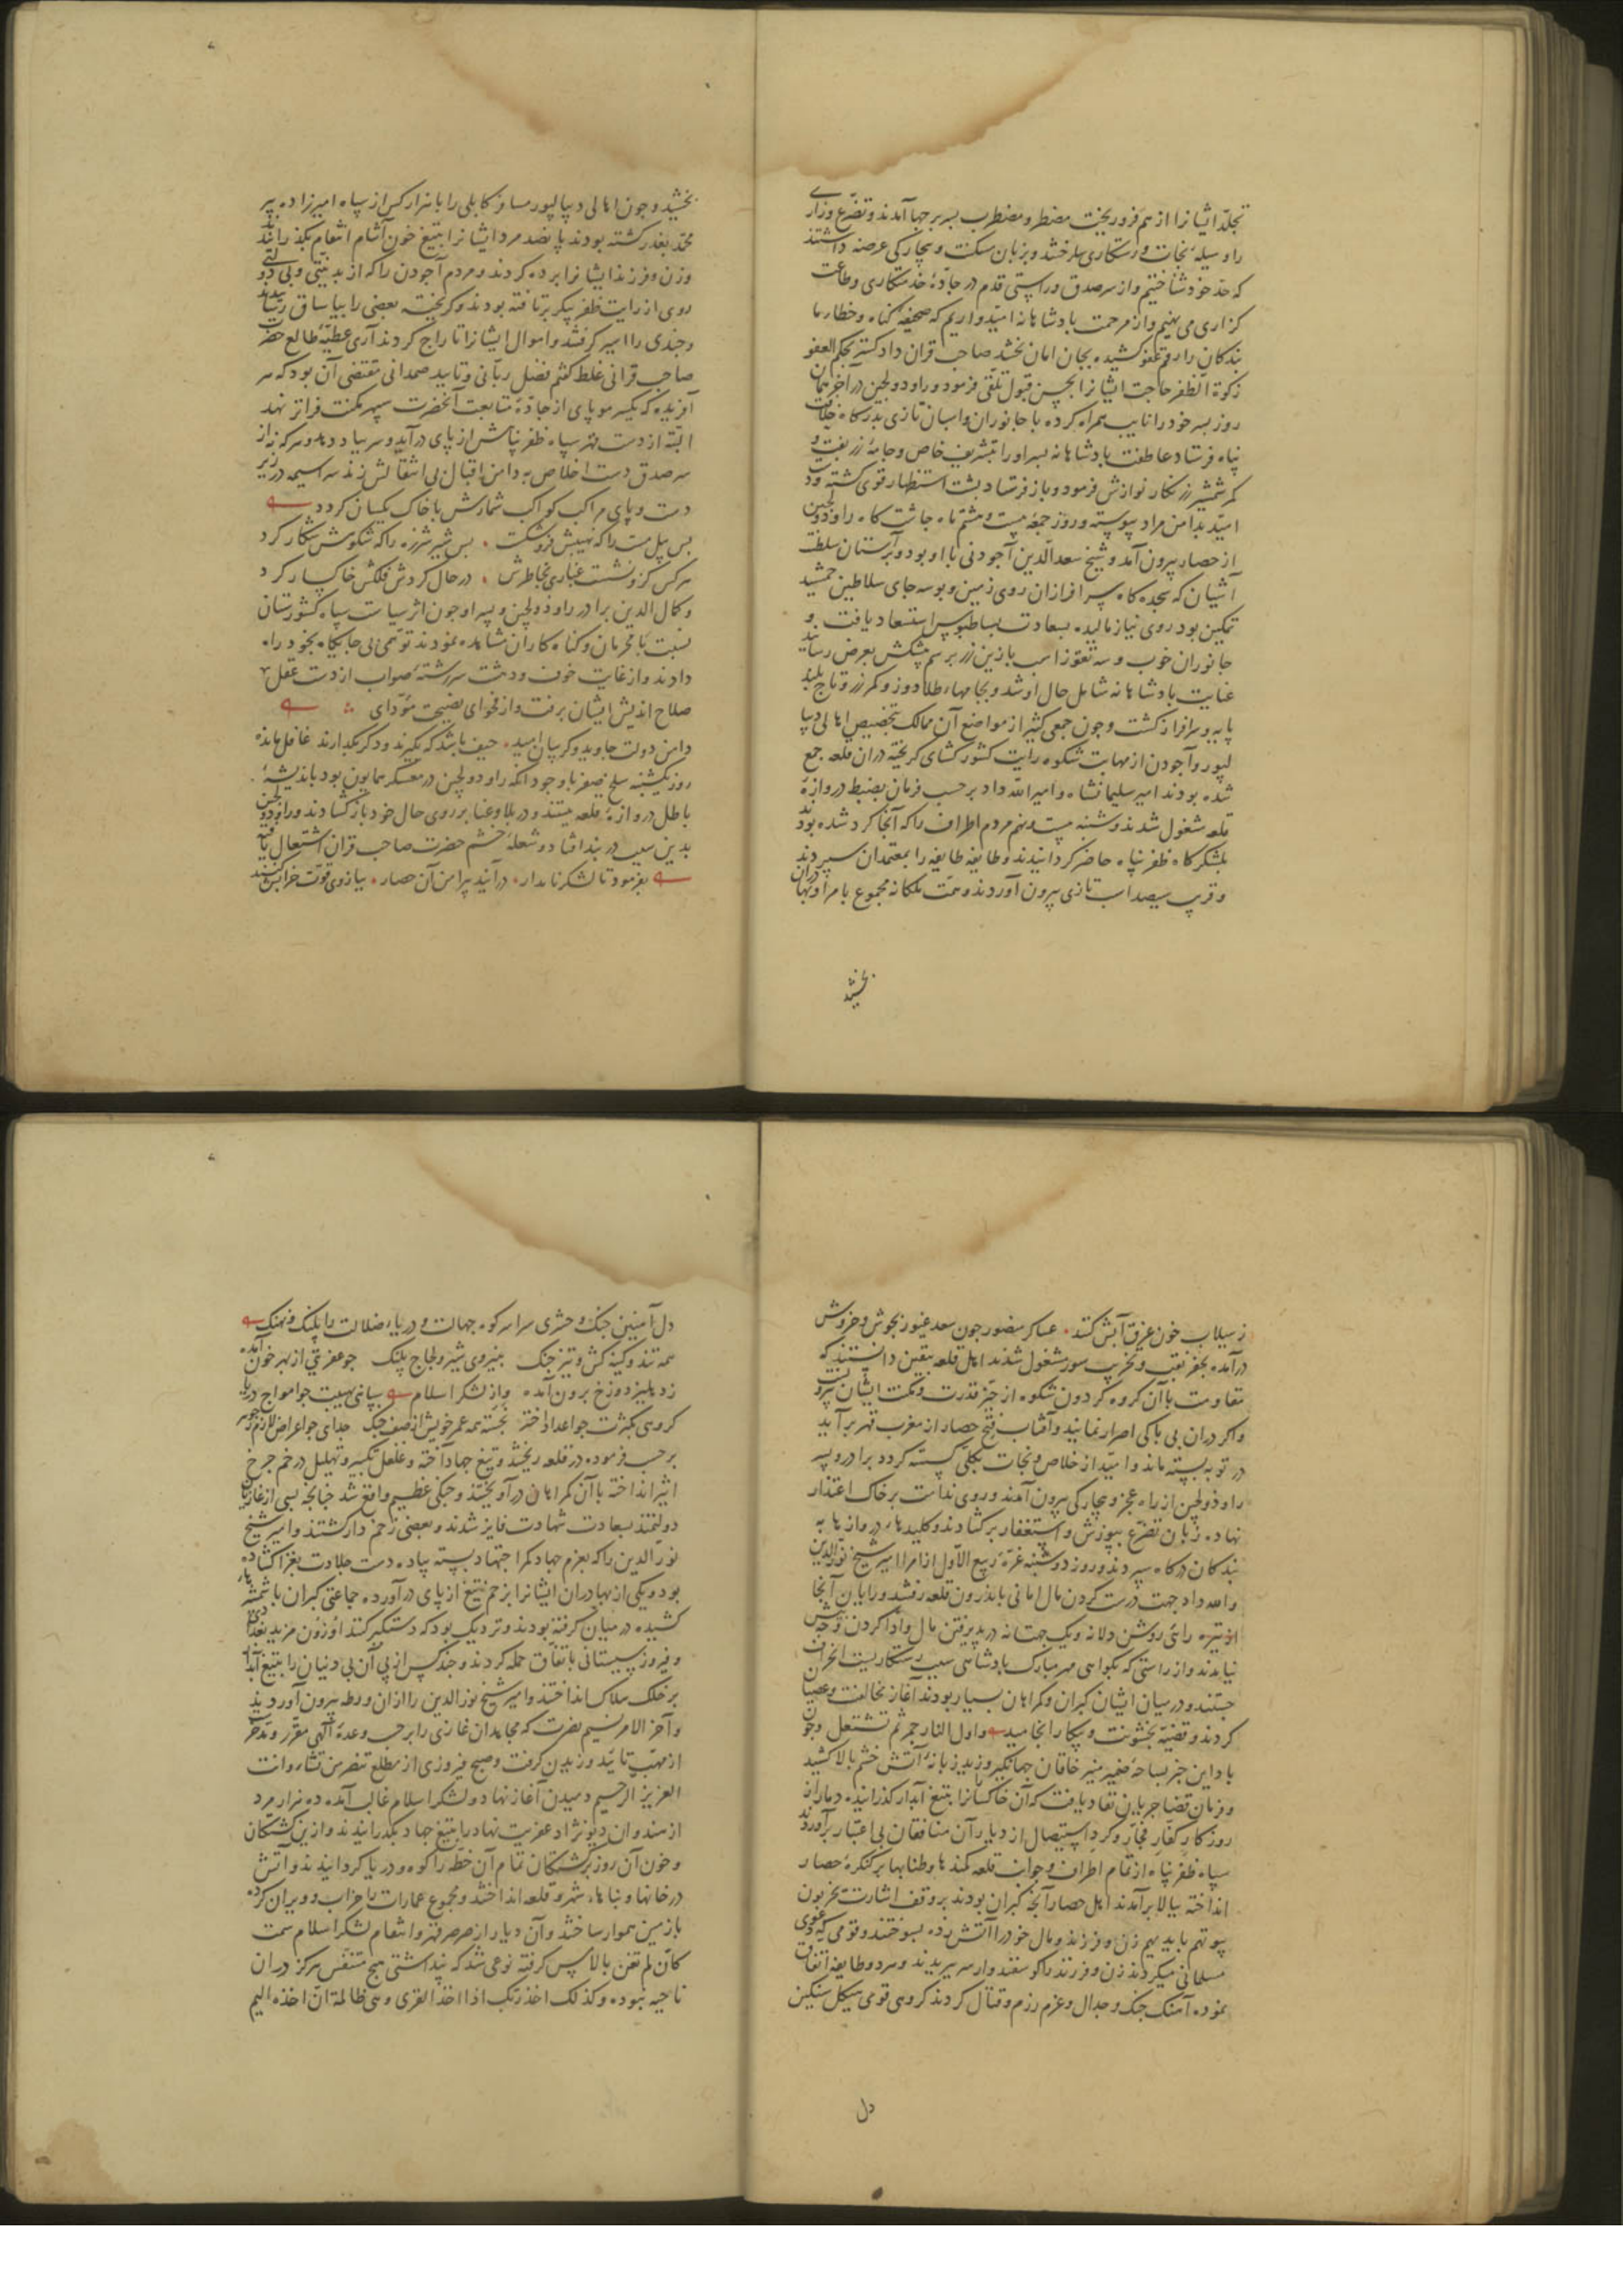 تجلد ایشانرا از هم فروریخت مضطر و مضطرب بسر برجها آمدند و تضرع و زاری
را وسیله نجات و رستکاری ساختند و بزبان مسکنت و بیچارکی عرضه داشتند
که حد خود شناختیم و از سر صدق و راستی قدم در جاده خدمتکاری و طاعت
کزاری می نهیم و از مرحمت پادشاهانه امیدواریم که صحیفه کناه و خطار ما
بندکان را رقم عفو کشیده بجان امان بخشد صاحب قران دادکستر بحکم العفو
زکوة الظفر حاجت ایشانرا بحسن قبول تلقی فرمود و راو دولجین در آخر همان
روز پسر خود را نایب همراه کرده با جانوران و اسبان تازی بدرکاه خلایق
پناه فرستاد عاطفت پادشاهانه پسر او را بتشریف خاص و جامه زربفت و
کمر شمشیر زرنکار نوازش فرمود و باز فرستاد پشت استظهار قوی کشته و دست
امید بدامن مراد پیوسته و روز جمعه بیست و هشتم ماه چاشت کاه راو دولجین
از حصار بیرون آمد و شیخ سعدالدین آجودنی با او بود و بر آستان سلطنت
آشیان که سجده کاه سرافرازان روی زمین و بوسه جای سلاطین جمشید
تمکین بود روی نیاز مالیده بسعادت بساط بوس استسعاد یافت و
جانوران خوب و سه تقوز اسب با زین زر برسم پیشکش بعرض رسانید
عنایت پادشاهانه شامل حال او شد و بجامهاء طلادوز و کمر زر و تاج بلند
پایه و سرافراز کشت و جون جمعی کثیر از مواضع آن ممالک بتخصیص اهالی دیبا
لپور و آجودن از مهابت شکوه رایت کشورکشای کریخته دران قلعه جمع
شده بودند امیر سلیمانشاه و امیر الله داد بر حسب فرمان بضبط دروازه
قلعه مشغول شدند و شنبه بیست و نهم مردم اطراف را که آنجا کرد شده بودند
بلشکرکاه ظفرپناه حاضر کردانیدند و طایفه طایفه را بمعتمدان سپردند
و قریب سیصد اسب تازی بیرون آوردند و همت ملکانه مجموع بامرا و بهادران
بخشید
بخشید و جون اهالی دیبالپور مسافر کابلی را با هزار کس از سپاه امیرزاده پیر
محمد بغدر کشته بودند پانصد مرد ایشانرا بتیغ خون آشام انتقام بکذرانیدند
و زن و فرزند ایشانرا برده کردند و مردم آجودن را که از بدبختی و بی دولتی
روی از رایت ظفر پیکر برتافته بودند و کریخته بعضی را بیاساق رسانیدند
و جندی را اسیر کرفتند و اموال ایشانرا تاراج کردند آری عطیه طالع حضرت
صاحب قرانی غلط کفتم فضل ربانی و تایید صمدانی مقتضی آن بود که هر
آفریده که یکسر مو پای از جاده متابعت آنحضرت سپهر مکنت فراتر نهد
البته از دست قهر سپاه ظفرپناهش از پای درآید و سر بباد دهد و هر که نه از
سر صدق دست اخلاص به دامن اقبال بی انتقالش زند سراسیمه در زیر
دست و پای مراکب کواکب شمارش با خاک یکسان کردد
بس پیل مست را که نهیبش فرو شکست بس شیر شرزه را که شکوهش شکار کرد
هر کس کزو نشست غباری بخاطرش در حال کردش فلکش خاکسار کرد
و کمال الدین برادر راو دولجین و پسر او جون اثر سیاست سپاه کشورستان
نسبت با مجرمان و کناه کاران مشاهده نمودند توهمی بی جایکاه بخود راه
دادند و از غایت خوف و دهشت سررشته صواب از دست عقل
صلاح اندیش ایشان برفت و از فحوای نصیحت مؤدای
دامن دولت جاوید و کریبان امید حیف باشد که بکیرند و دکر بکذارند غافل مانده
روز یکشنبه سلخ صفر با وجود انکه راو دولجین در معسکر همایون بود باندیشه
باطل دروازه قلعه ببستند و در بلا و عنا بر روی حال خود بازکشادند و راو دولجین
بدین سبب در بند افتاد و شعله خشم حضرت صاحب قران اشتعال یافته
بفرمود تا لشکر نامدار درآیند پیرامن آن حصار ببازوی قوت خرابش کنند
ز سیلاب خون غرق آبش کنند عساکر منصور جون سعد غیور بجوش و خروش
درآمده بحفر نقب و تخریب سور مشغول شدند اهل قلعه بیقین دانستند که
مقاومت با آن کروه کردون شکوه از حیز قدرت و مکنت ایشان بیرونست
و اکر دران بی باکی اصرار نمایند و آفتاب فتح حصار از مغرب قهر برآید
در توبه بسته ماند و امید از خلاص و نجات بکلی کسسته کردد برادر و پسر
راو دولجین از راه عجز و بیچارکی بیرون آمدند و روی ندامت بر خاک اعتذار
نهاده زبان تضرع بپوزش و استغفار برکشادند و کلیدهاء دروازها به
بندکان درکاه سپردند و روز دوشنبه غره ربیع الاول از امرا امیر شیخ نورالدین
و الله داد جهت درست کردن مال امانی باندرون قلعه رفتند و رایان آنجا
از تیره رائی روشن دلانه و یک جهتانه در پذیرفتن مال و ادا کردن وجهش
نیامدند و از راستی که بکواهی مهر مبارک پادشاهی سبب رستکاریست انحراف
جستند و در میان ایشان کبران و کمراهان بسیار بودند آغاز مخالفت و عصیان
کردند و قضیه بخشونت و پیکار انجامید و اول النار جمر ثم تشتعل و جون
باد این خبر بساحه ضمیر منیر خاقان جهانکیر وزید زبانه آتش خشم بالا کشید
و فرمان قضا جریان نفاد یافت که آن خاکسارانرا بتیغ آبدار کذرانیده دمار از
روزکار کفار فجار و کرد استیصال از دیار آن منافقان بی اعتبار برآوردند
سپاه ظفرپناه از تمام اطراف و جوانب قلعه کمندها و طنابها بر کنکره حصار
انداخته ببالا برآمدند اهل حصار آنجه کبران بودند بر وفق اشارت یخربون
بیوتهم بایدیهم زن و فرزند و مال خود را آتش زده بسوختند و قومی که دعوی
مسلمانی میکردند زن و فرزند را کوسفندوار سر بریدند و هر دو طایفه اتفاق
نموده آهنک جنک و جدال و عزم رزم و قتال کردند کروهی قومی هیکل سنکین
دل
دل آهنین جنک و حشری سراسر کوه جهالت و دریاء ضلالت را پلنک و نهنک
همه تند و کینه کش و تیز جنک بنیروی شیر و لجاج پلنک جو عفریتی از بهر خون آمده
ز دهلیز دوزخ برون آمده و از لشکر اسلام سپاهی بهیبت جو امواج دریا
کروهی بکثرت جو اعداد اختر نجسته همه عمر خویش از صف جنک جدای جو اعراض لازم ز جوهر
بر حسب فرموده در قلعه ریختند و تیغ جهاد آخته و غلغل تکبیر و تهلیل در خم جرخ
اثیر انداخته با آن کمراهان درآویختند و جنکی عظیم واقع شد جنانجه بسی از غازیان
دولتمند بسعادت شهادت فایز شدند و بعضی زخم دار کشتند و امیر شیخ
نورالدین را که بعزم جهاد کمر اجتهاد بسته پیاده دست جلادت بغزا کشاده
بود و یکی از بهادران ایشانرا بزخم تیغ از پای درآورده جماعتی کبران با شمشیرها
کشیده در میان کرفته بودند و نزدیک بود که دستکیر کنند اوزون مزید بغدادی
و فیروز سیستانی باتفاق حمله کردند و جند کس از پی آن بی دینان را بتیغ آبدار
بر خاک هلاک انداختند و امیر شیخ نورالدین را از ان ورطه بیرون آوردند
و آخر الامر نسیم نصرت که مجاهدان غازی را بر حسب وعده الهی مقرر و مدخر
از مهب تائید وزیدن کرفت و صبح فیروزی از مطلع تنصر من تشاء و انت
العزیز الرحیم دمیدن آغاز نهاد و لشکر اسلام غالب آمده ده هزار مرد
از هندوان دیو نژاد عفریت نهاد را بتیغ جهاد بکذرانیدند و ازین کشتکان
و خون آن روز برکشتکان تمام آن خطه را کوه و دریا کردانیدند و آتش
در خانها و بناهاء شهر و قلعه انداختند و مجموع عمارات را خراب و ویران کرده
با زمین هموار ساختند و آن دیار از صرصر قهر و انتقام لشکر اسلام سمت
کان لم تغن بالامس کرفته نوعی شد که پنداشتی هیچ متنفس هرکز دران
ناحیه نبوده و کذلک اخذ ربک اذا اخذ القری و هی ظالمة ان اخذه الیم